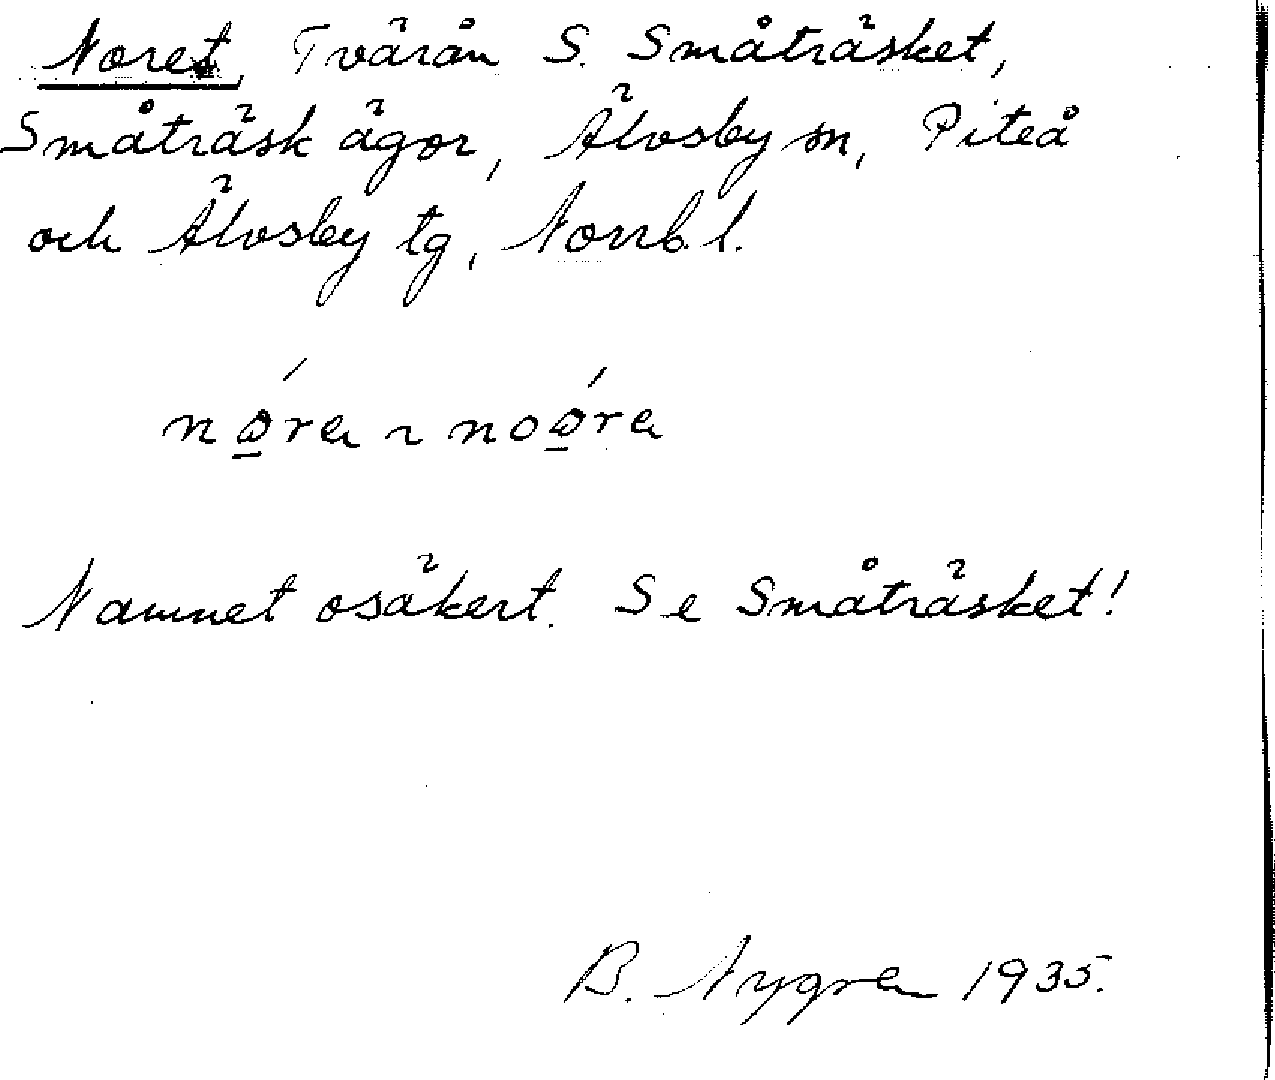 Noret, Tvärån S. Småträsket,
Småträsk ägor, Älvsby sn, Piteå
och Älvsby tg, Norrb. l.
nǿ̲ra ~ noǿ̲ra
Namnet osäkert. Se Småträsket!
B. Nygren 1935.